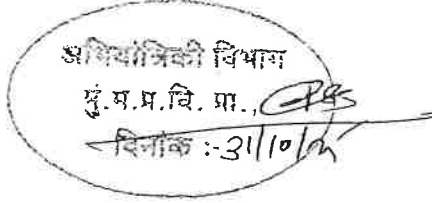 अभियांत्रिकी विभाग
मुं.म.प्र.वि. प्रा.,
दिनांक :-31/10/